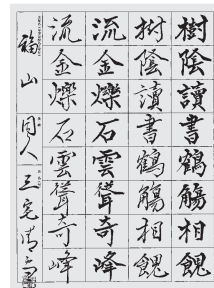 樹陰讀書鶴觴相餽
樹陰讀書鶴觴相餽
流金爍石雲聳奇峰
流金爍石雲聳奇峰
福山 同人 三宅